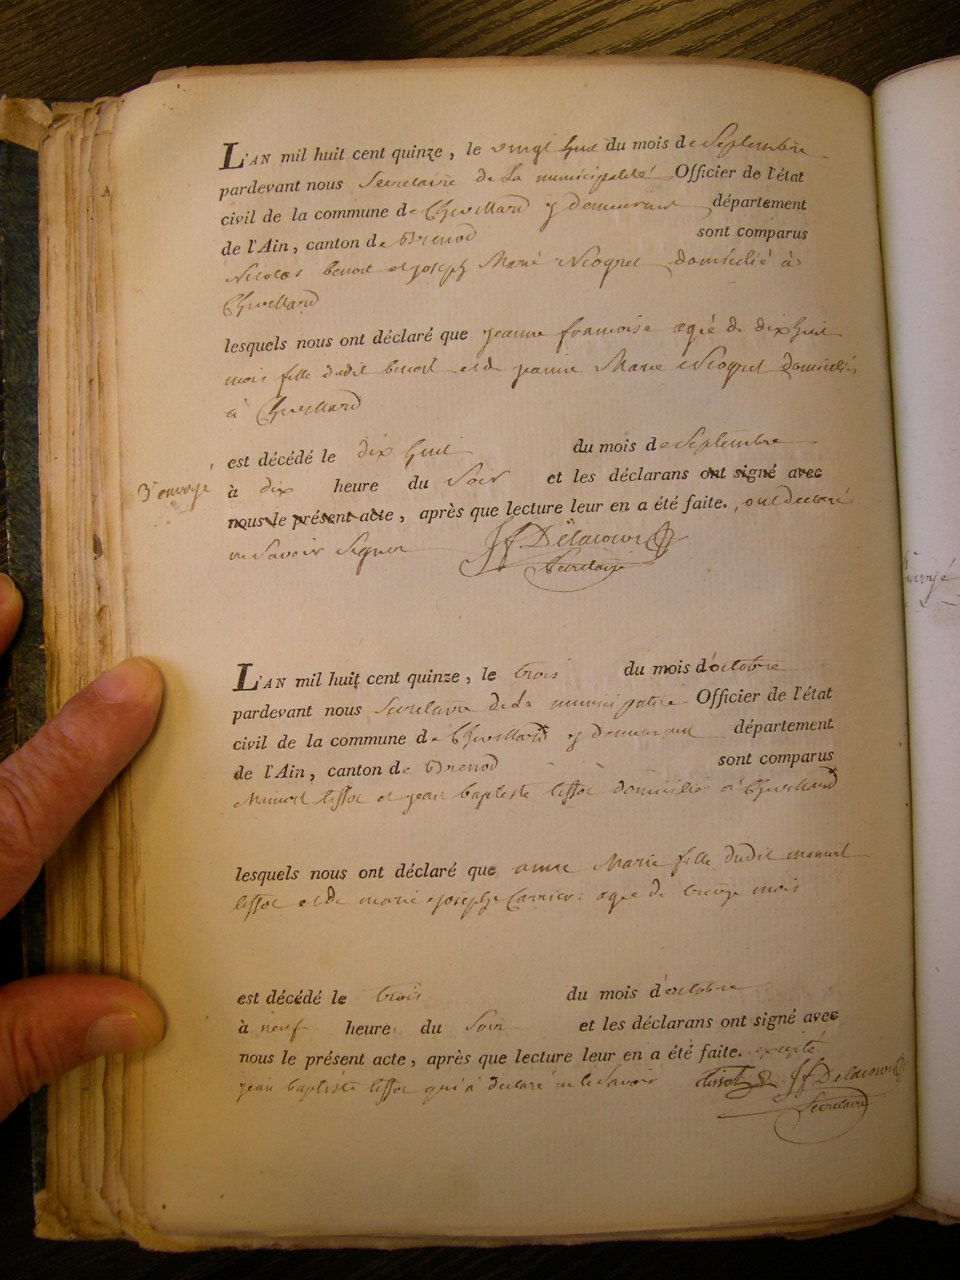 L'AN mil huit cent quinze, le vingt huit du mois de Septembre
pardevant nous Secretaire de la municipalité Officier de l'état
civil de la commune de Chevillard y demeurant département
de l'Ain, canton de Brenod sont comparus
Nicolas benoit et joseph Marie Nicquet domicilié à
Chevillard
lesquels nous ont déclaré que jeanne francoise agée de dix huit
mois fille dudit benoit et de jeanne Marie domiciliés
à Chevillard
est décédé le dix huit du mois de Septembre
3e envoyé
à dix heure du Soir et les déclarans ont signé avec
nous le présent acte, après que lecture leur en a été faite., ont declaré
ne Savoir Signer Jf Delacour
Secretaire
L'AN mil huit cent quinze, le trois du mois d'octobre
pardevant nous Secretaire de la municipalité Officier de l'état
civil de la commune de Chevillard y demeurant département
de l'Ain, canton de Brenod sont comparus
Manuel tissot et jean baptiste tissot domiciliés à Chevillard
lesquels nous ont déclaré que anne Marie fille dudit manuel
tissot et de marie josephe Carrier: agée de treize mois
est décédé le trois du mois d'octobre
à neuf heure du Soir et les déclarans ont signé avec
nous le présent acte, après que lecture leur en a été faite. excepté
jean baptiste tissot qui a declaré ne le Savoir tissot Jf Delacour
Secretaire
envoyé